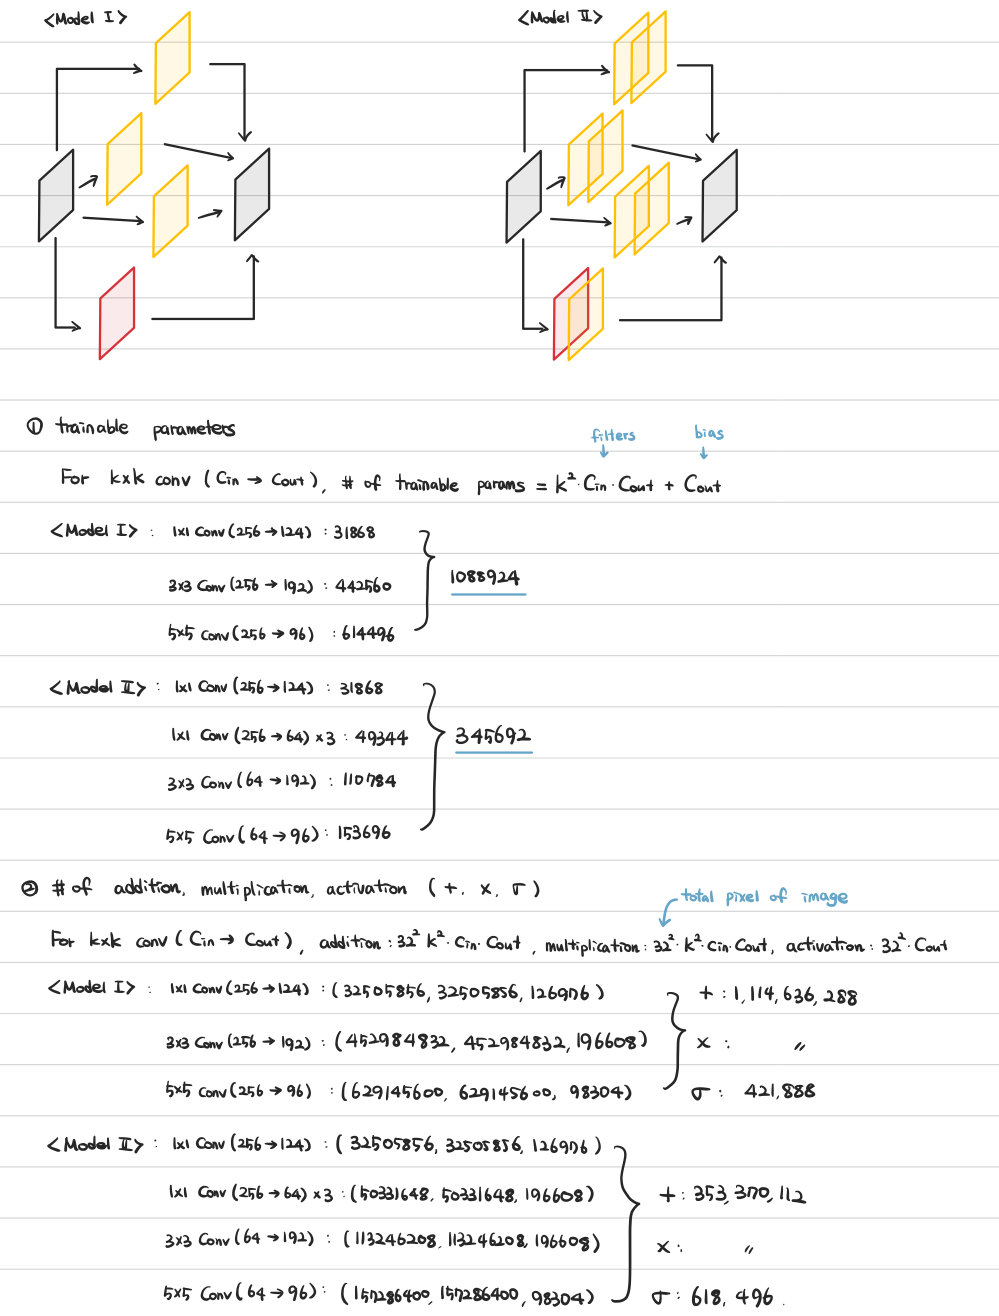 <Model I> <Model II>
① trainable parameters
filters bias
For k×k conv (Cin → Cout), # of trainable params = k²·Cin·Cout + Cout
<Model I> : 1x1 Conv(256→124) : 31868
3x3 Conv(256 → 192) : 442560
1088924
5x5 Conv(256 → 96) : 614496
<Model II> : 1x1 Conv(256→124) : 31868
1x1 Conv(256→64) x3 : 49344
345692
3x3 Conv(64 → 192) : 110784
5x5 Conv(64 → 96) : 153696
② # of addition, multiplication, activation (+, ×, σ)
total pixel of image
For k×k conv (Cin → Cout), addition : 32² k²·Cin·Cout, multiplication : 32²·k²·Cin·Cout, activation : 32²·Cout
<Model I> : 1x1 Conv(256→124) : (32505856, 32505856, 126976) + : 1,114,636,288
3x3 Conv(256 → 192) : (452984832, 452984832, 196608) × : 〃
5x5 Conv(256 → 96) : (629145600, 629145600, 98304) σ : 421,888
<Model II> : 1x1 Conv(256→124) : (32505856, 32505856, 126976)
1x1 Conv(256→64) x3 : (50331648, 50331648, 196608) + : 353,370,112
3x3 Conv(64 → 192) : (113246208, 113246208, 196608) × : 〃
5x5 Conv(64 → 96) : (157286400, 157286400, 98304) σ : 618,496